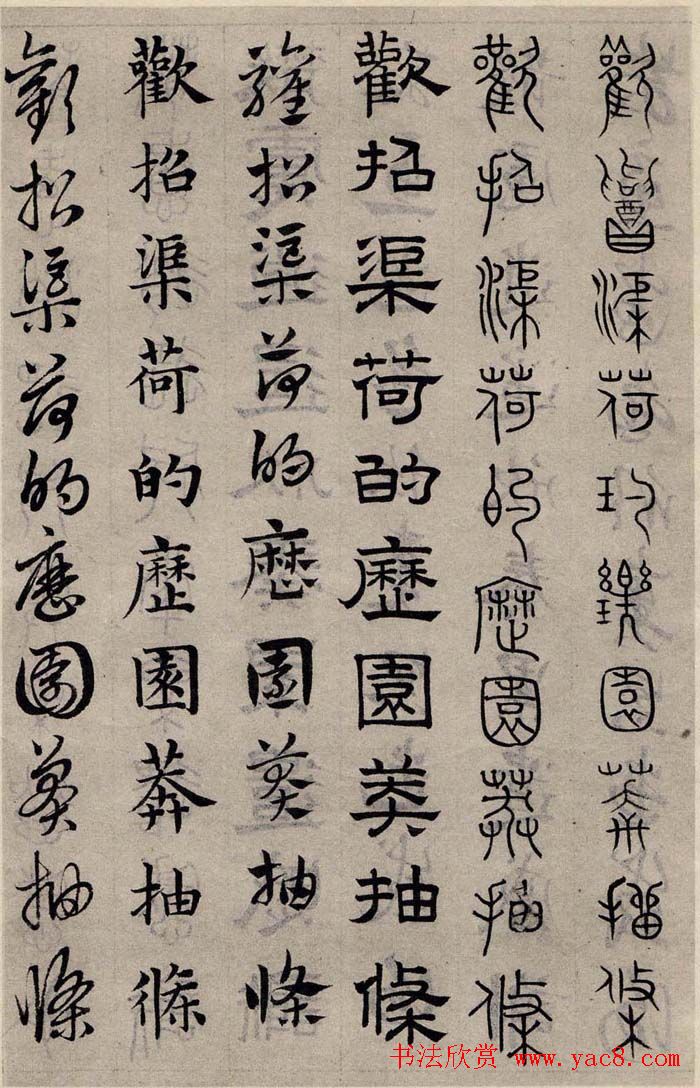 歡招渠荷的歷園莽抽條
歡招渠荷的歷園莽抽條
歡招渠荷的歷園莽抽條
歡招渠荷的歷園莽抽條
歡招渠荷的歷園莽抽條
歡招渠荷的歷園莽抽條
书法欣赏 www.yac8.com